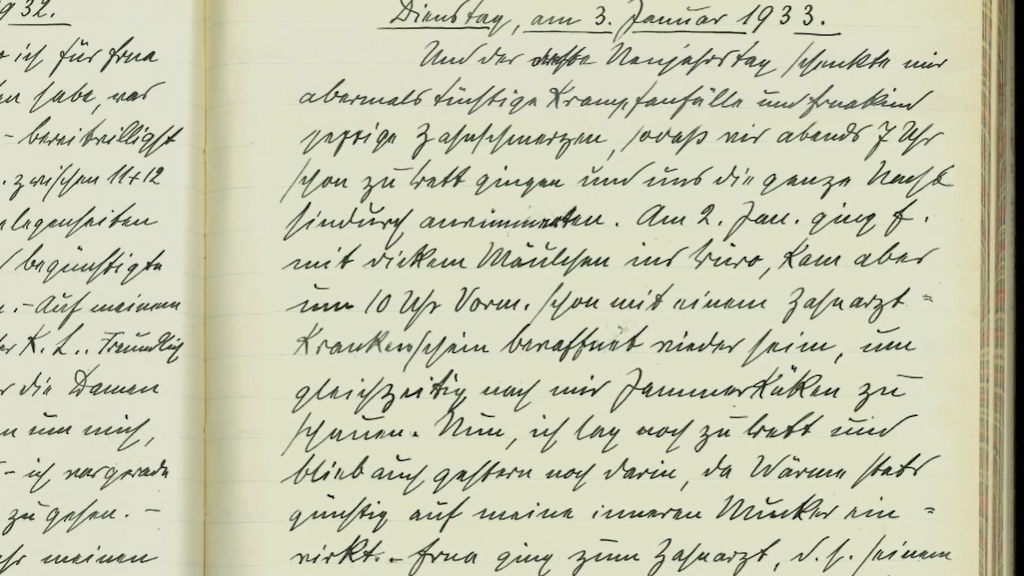 932.
ich für Erna
habe, was
- bereitwilligst
. zwischen 11 + 12
elegenheiten
begünstigte
.- Auf meinem
K. L.. Freundlich
die Damen
um mich,
- ich war gerade
zu gehen. -
meinen
Dienstag, am 3. Januar 1933.
Und der Neujahrstag schenkte mir
abermals tüchtige Krampfanfälle und Ernakind
heftige Zahnschmerzen, sodaß wir abends 7 Uhr
schon zu Bett gingen und uns die ganze Nacht
hindurch anwimmerten. Am 2. Jan. ging E.
mit dickem Mäulchen ins Büro, kam aber
um 10 Uhr Vorm. schon mit einem Zahnarzt =
Krankenschein bewaffnet wieder heim, um
gleichzeitig nach mir Jammerküken zu
schauen. Nun, ich lag noch zu Bett und
blieb auch gestern noch darin, da Wärme stets
günstig auf meine inneren Mucker ein =
wirkt. - Erna ging zum Zahnarzt, d. h. seinem